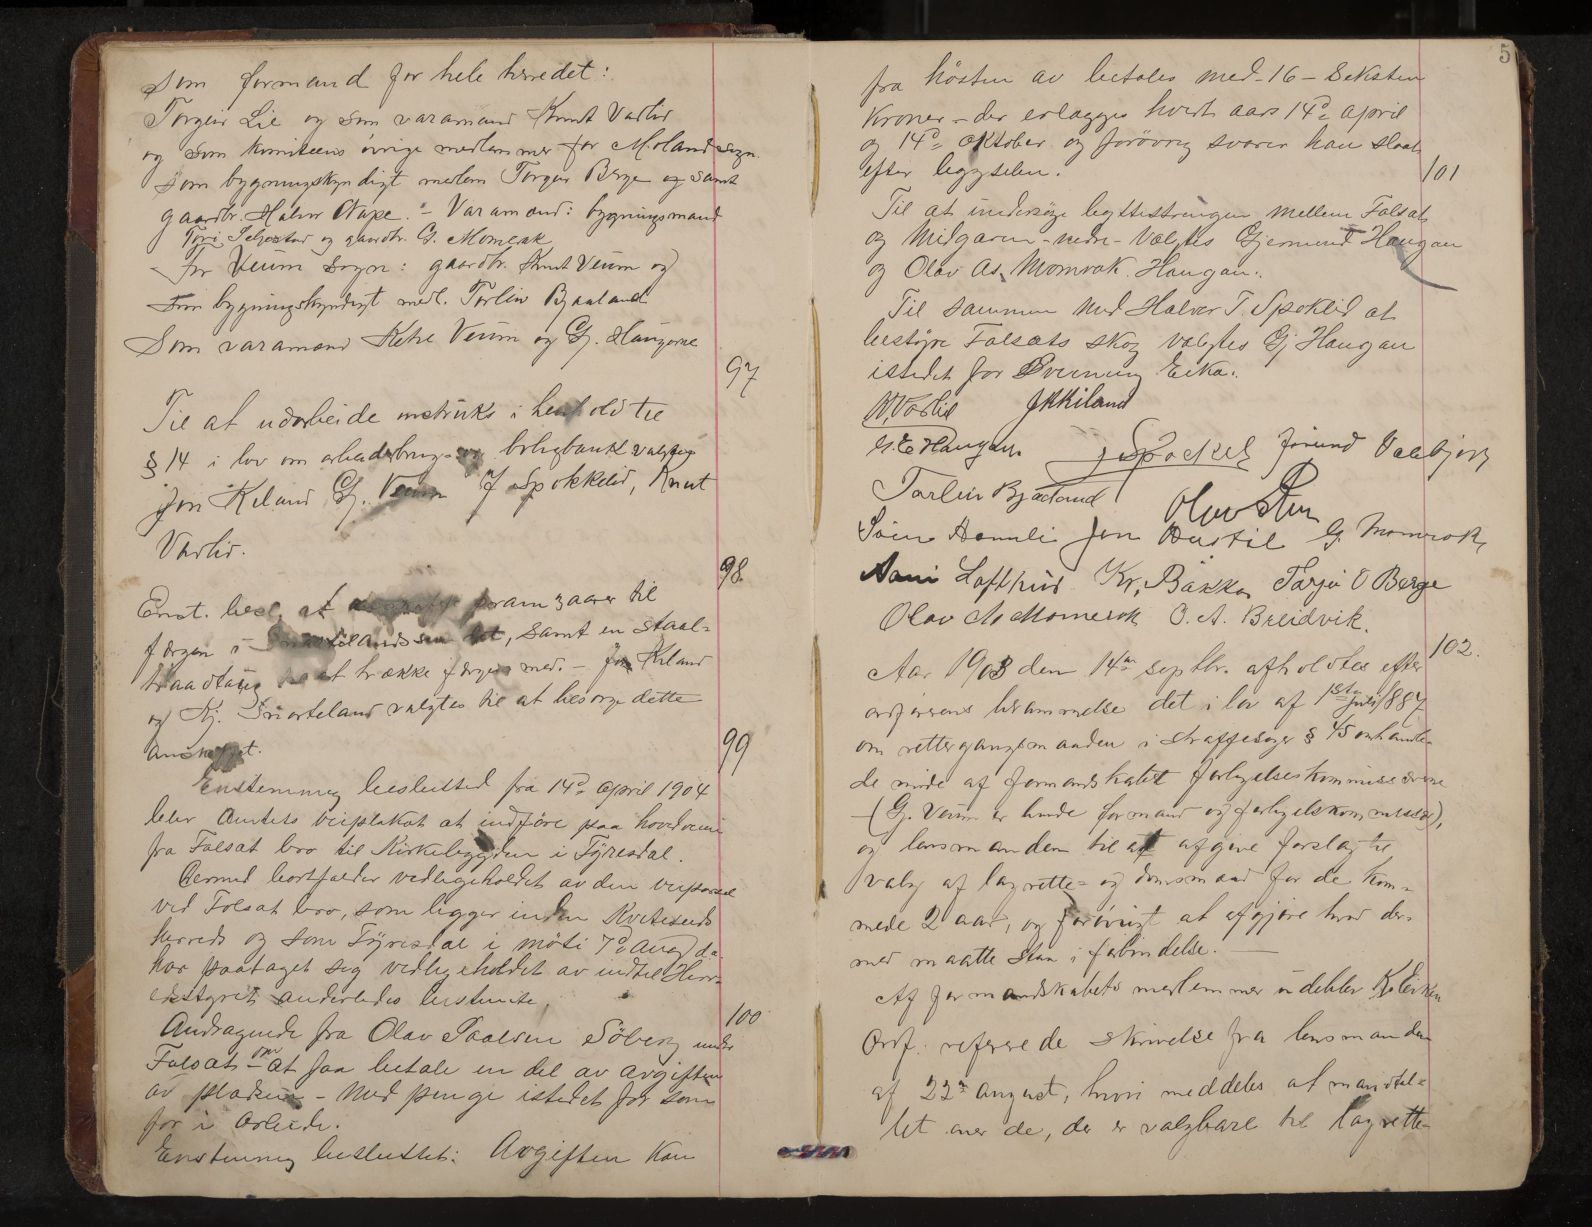 som formand for hele herredet:
Torgeir Lie og som varamand Knut Vaslid
og som komiteens øvrige medlemmer for Moland sogn
som bygningskyndigt medlem Torgeir Berge og samt
gaardbr. Halvor Nape. - Varamænd: bygningsmand
og gaardbr. G. Momrak
For Veum sogn: gaardbr. Knut Veum og
som bygningskyndigt medl. Torleiv Bjaaland
Som varamænd Ketil Veum og Gj. Haugerne
97
Til at udarbeide instruks i henhold til
§ 14 i lov om arbeiderbrug og boligbank valgtes
Jon Kiland Gj. Veum J Spokkelid, Knut
Vaslid.
98.
Enst. besl. at pram gaar til
færgen i, samt en staal-
traadtaug at trække færgen med. - Jon Kiland
og Kj. Snorteland valgtes til at besørge dette
anskaffet.
99
Enstemmig besluttet fra 14de april 1904
blev Amtets veiplakat at indføre paa hovedveien
fra Folsæt bro til Kirkebygden i Tyresdal.
Dermed bortfalder vedligeholdet av den veiparsel
ved Folsæt bro, som ligger inden Kviteseids
herred og som Tyresdal i møte 7de aug d.a.
har paataget sig vedligeholdet av indtil Herr-
edstyret anderledes bestemte.
100
Andragende fra Olav Paalsen Söberg under
Folsæt om at faa betale en del av avgiften
av pladsen - med penge istedet for som
før i arbeide.
Enstemmig besluttet: Avgiften kan
5
fra høsten av betales med - 16 - seksten
Kroner - der erlægges hvert aars 14de april
og 14de oktober og forøvrig svarer han slaat
efter bygselen.
101
Til at undersøge byttestrengen mellem Folsæt
og Midgarden - nedre - valgtes Gjermund Haugan
og Olav As. Momrak. Haugan.
Til sammen med Halvor T. Spokkelid at
bestyre Folsæts skog valgtes Gj Haugan
istedet for Svenung Eika.
K. Vaslid JKKiland
G. E Haugan J Spockeli Jörund Valebjörg
Torleiv Bjaaland Olav Sten
Svein Homli Jon Austil G. Momrak
Aani Lofthus Kr, Bakka Torgei O Berge
Olav N Momrak O. A. Breidvik.
102.
Aar 1903 den 14de septbr. afholdtes efter
ordførerens berammelse det i lov af 1ste juli 1887
om rettergangsmaaden i straffesager § 45 omhandle-
de møde af formandskabet forligelseskommissærerne
(G. Veum er baade formand og forligelskommissær),
og lensmanden til at afgive forslag til
valg af lagrette- og domsmænd for de kom-
mede 2 aar, og forøvrigt at afgjøre hvad der-
med maatte staa i forbindelse.
Af formandskabets medlemmer udeblev K. Eikin
Ordf. refererede skrivelse fra lensmanden
af 22de august, hvori meddeles at mandtal-
let over de, der er valgbare til lagrette-